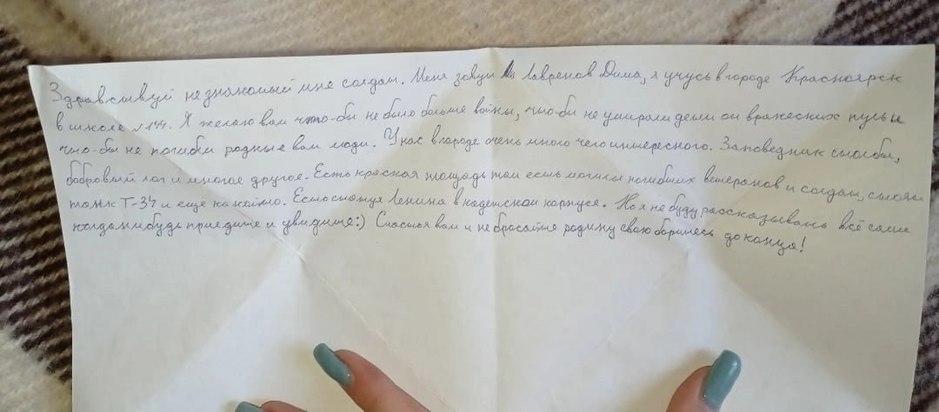 Здравствуй незнакомый мне солдат. Меня зовут Лавренов Дима, я учусь в городе Красноярск
в школе №144. Я желаю вам что-бы не было больше войны, что-бы не умирали дети от вражеских пуль и
что-бы не погибли родные вам люди. У нас в городе очень много чего интересного. Заповедник столбы,
бобровый лог и многое другое. Есть красная площадь там есть могилы погибших ветеранов и солдат, стоят
танк Т-34 и еще какойто. Есть статуя Ленина в кадетском корпусе. Но я не буду рассказывать всё сами
когданибудь приедите и увидите:) Счастья вам и не бросайте родину свою боритесь до конца!